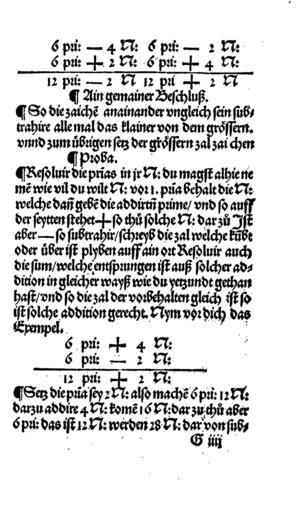 6 pri: — 4 N: 6 pri: — 2 N:
6 pri: + 2 N: 6 pri: + 4 N:
12 pri: — 2 N 12 pri + 2 N
¶ Ain gemainer Beschluß.
¶ So die zaichē anainander vngleich sein sub-
trahire alle mal das klainer von dem grössern.
vnnd zum übrigen setz der grössern zal zai chen
¶ Proba.
¶ Resoluir die prias in jr N: du magst alhie ne
mē wie vil du wilt N: vor 1. pria behalt die N:
welche dañ gebē die addirtū prime/ vnd so auff
der seytten stehet + so thů solche N: dar zů Ist
aber — so subtrahir/ schreyb die zal welche
oder über ist plyben auff ain ort Resoluir auch
die sum/ welche entsprungen ist auß solcher ad-
dition in gleicher wayß wie du yetzundt gethan
hast/ vnd so die zal der vorbehalten gleich ist so
ist solche addition gerecht. Nym vor dich das
Exempel.
6 pri: + 4 N:
6 pri: — 2 N:
12 pri + 2 N:
¶ Setz die pria sey 2 N: also machē 6 pri: 12 N:
darzu addire 4 N: komē 16 N: dar zu thů aber
6 pri: das ist 12 N: werden 28 N: dar von sub-
G iiij